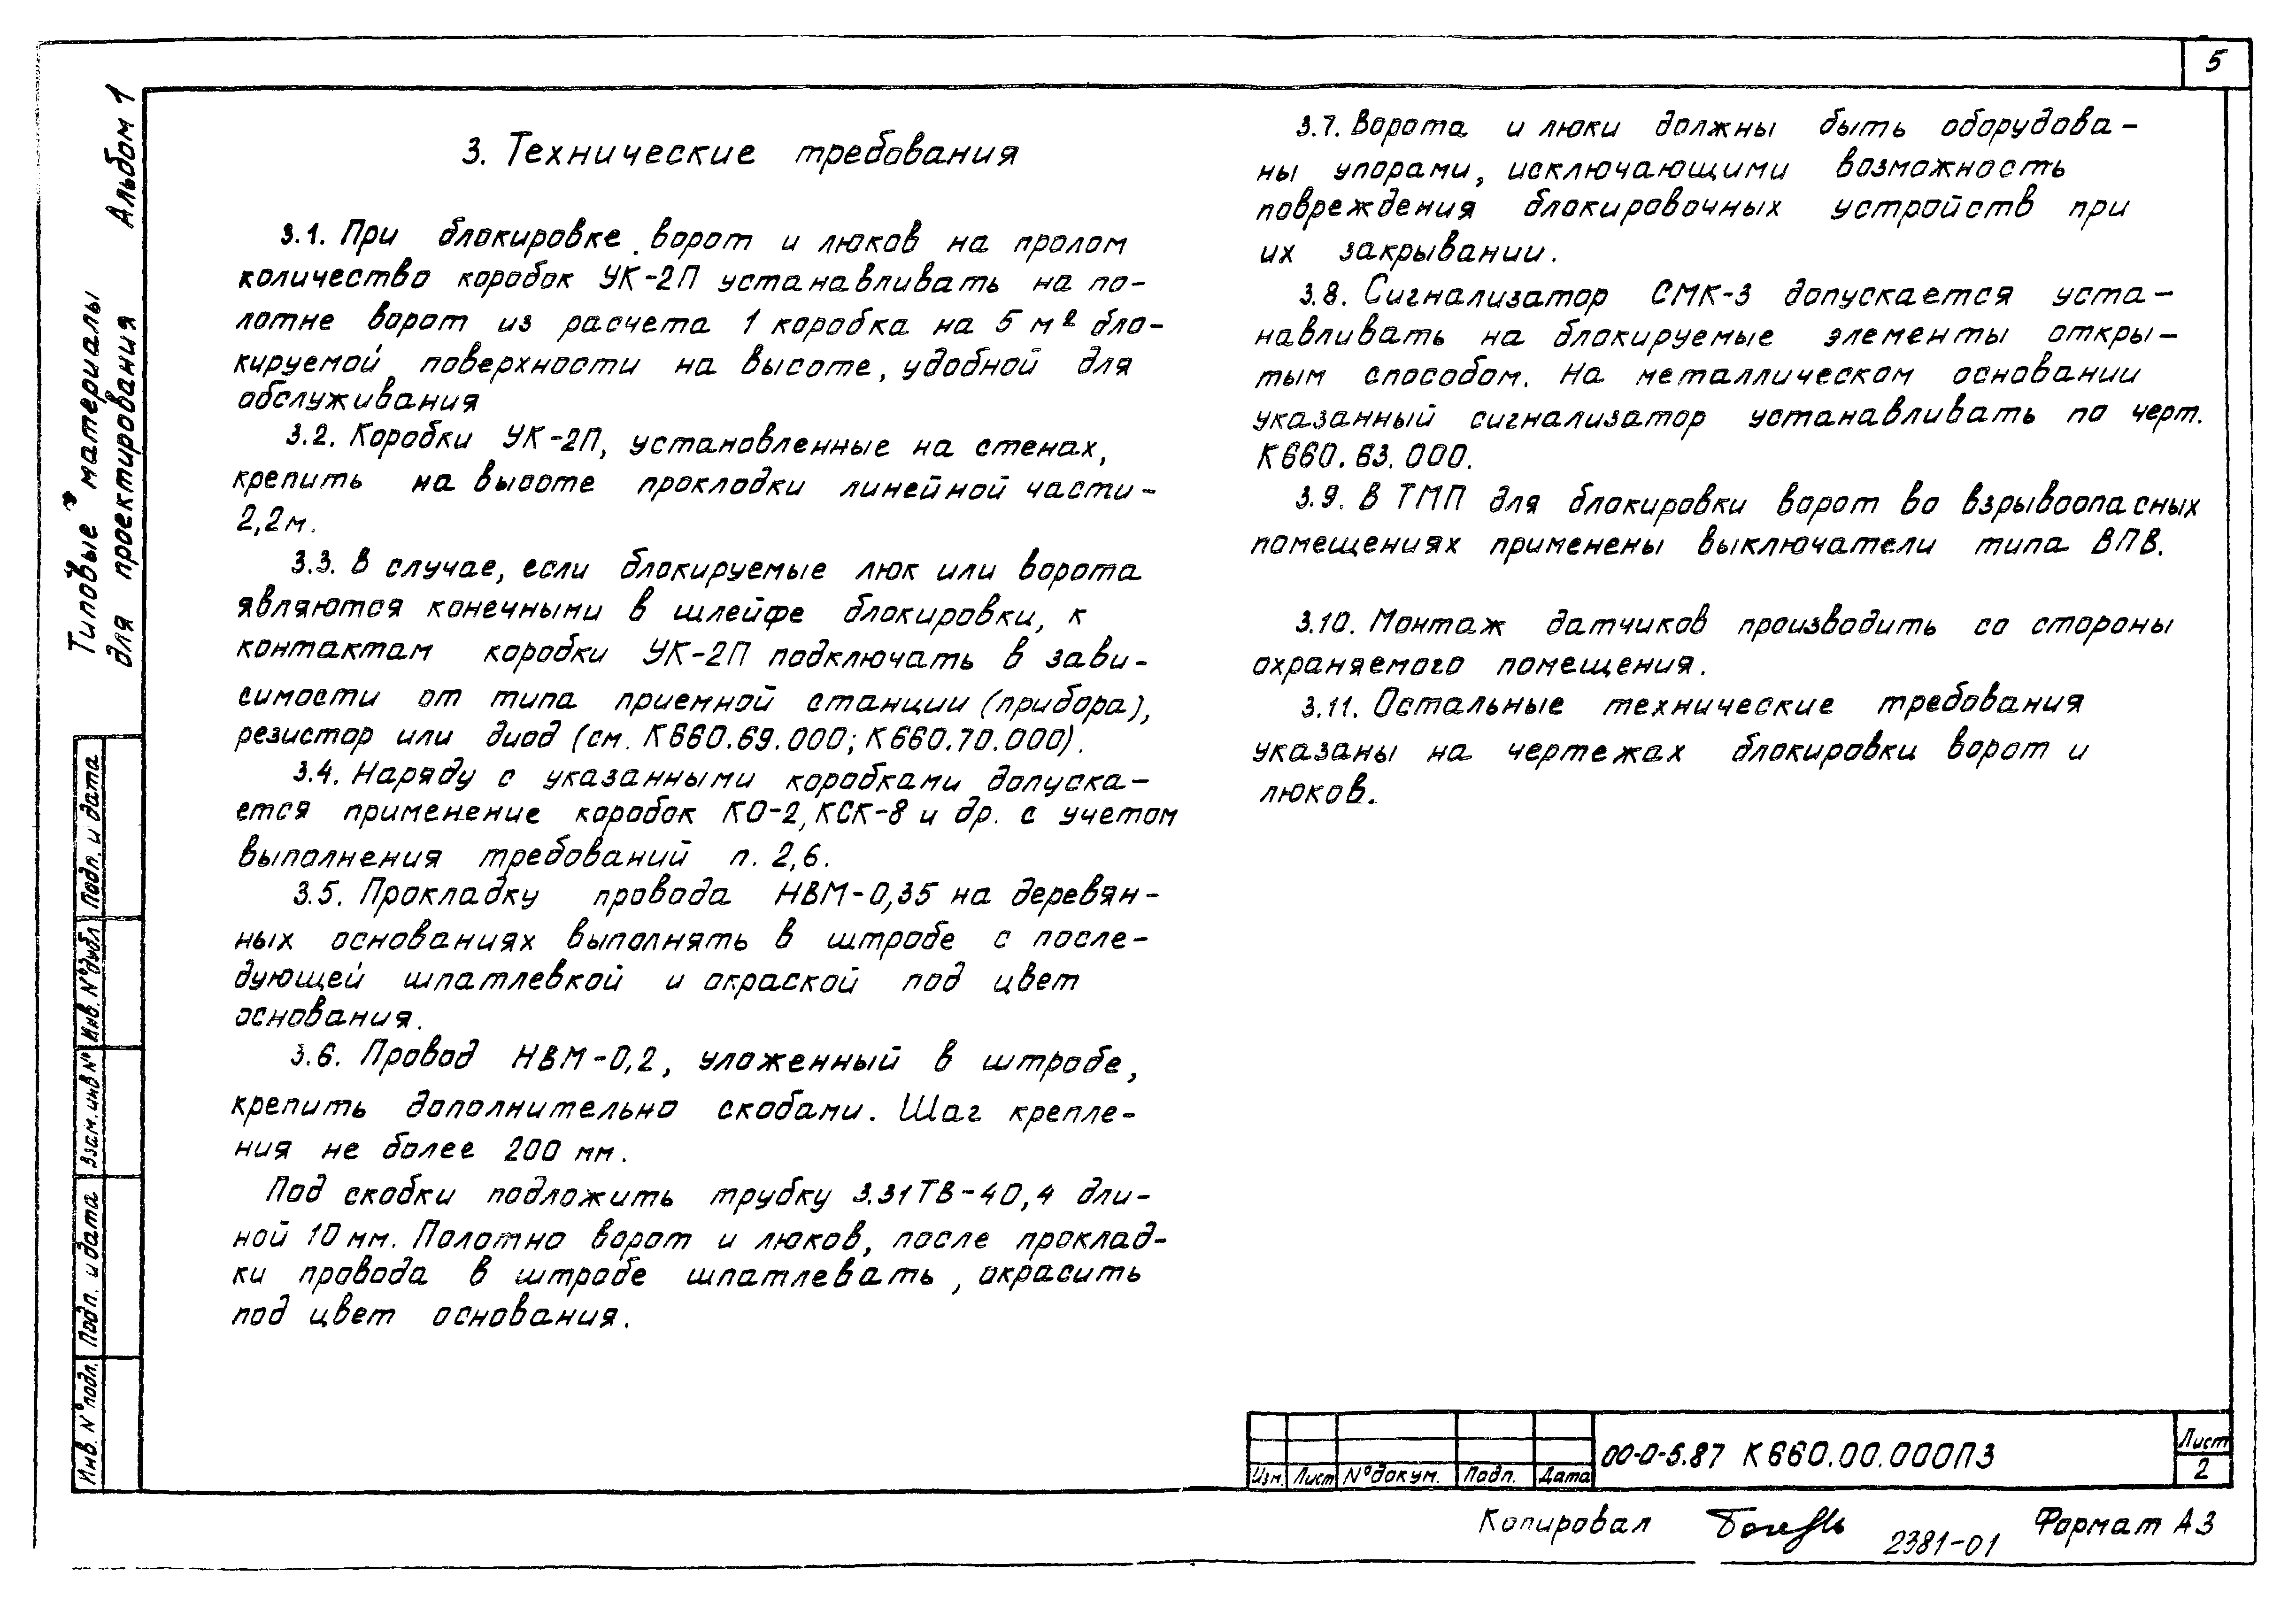 5
Типовые материалы
для проектирования Альбом 1
3. Технические требования
3.1. При блокировке ворот и люков на пролом
количество коробок УК-2П устанавливать на по-
лотне ворот из расчета 1 коробка на 5 м² бло-
кируемой поверхности на высоте, удобной для
обслуживания
3.2. Коробки УК-2П, установленные на стенах,
крепить на высоте прокладки линейной части-
2,2м.
3.3. В случае, если блокируемые люк или ворота
являются конечными в шлейфе блокировки, к
контактам коробки УК-2П подключать в зави-
симости от типа приемной станции (прибора),
резистор или диод (см. К660.69.000; К660.70.000).
3.4. Наряду с указанными коробками допуска-
ется применение коробок КО-2, КСК-8 и др. с учетом
выполнения требований п. 2,6.
3.5. Прокладку провода НВМ-0,35 на деревян-
ных основаниях выполнять в штробе с после-
дующей шпатлевкой и окраской под цвет
основания.
3.6. Провод НВМ-0,2, уложенный в штробе,
крепить дополнительно скобами. Шаг крепле-
ния не более 200 мм.
Под скобки подложить трубку 3.31ТВ-40,4 дли-
ной 10 мм. Полотно ворот и люков, после проклад-
ки провода в штробе шпатлевать, окрасить
под цвет основания.
3.7. Ворота и люки должны быть оборудова-
ны упорами, исключающими возможность
повреждения блокировочных устройств при
их закрывании.
3.8. Сигнализатор СМК-3 допускается уста-
навливать на блокируемые элементы откры-
тым способом. На металлическом основании
указанный сигнализатор устанавливать по черт.
К660.63.000.
3.9. В ТМП для блокировки ворот во взрывоопасных
помещениях применены выключатели типа ВПВ.
3.10. Монтаж датчиков производить со стороны
охраняемого помещения.
3.11. Остальные технические требования
указаны на чертежах блокировки ворот и
люков.
Подп. и дата
Инв. № дубл
Взам. инв №
Подп. и дата
Инв. № подл.
Изм. Лист № докум. Подп. Дата
00-0-5.87 К660.00.000ПЗ
Лист
2
Копировал
2381-01
Формат А3